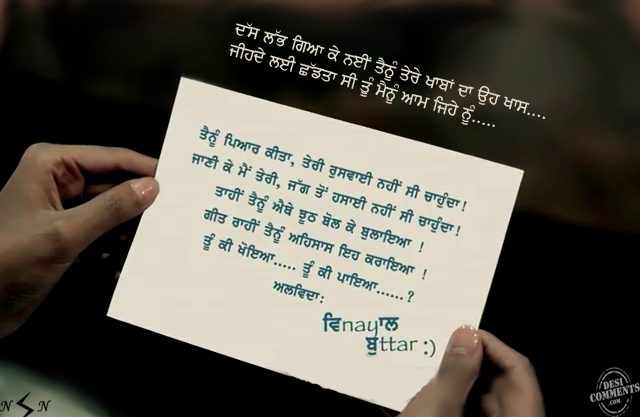 ਦੱਸ ਲੱਭ ਗਿਆ ਕੇ ਨਈਂ ਤੈਨੂੰ ਤੇਰੇ ਖਾਬਾਂ ਦਾ ਉਹ ਖਾਸ....
ਜੀਹਦੇ ਲਈ ਛੱਡਤਾ ਸੀ ਤੂੰ ਮੈਨੂੰ ਆਮ ਜਿਹੇ ਨੂੰ.....
ਤੈਨੂੰ ਪਿਆਰ ਕੀਤਾ, ਤੇਰੀ ਰੁਸਵਾਈ ਨਹੀਂ ਸੀ ਚਾਹੁੰਦਾ!
ਜਾਣੀ ਕੇ ਮੇਂ ਤੇਰੀ, ਜੱਗ ਤੋਂ ਹਸਾਈ ਨਹੀਂ ਸੀ ਚਾਹੁੰਦਾ!
ਤਾਹੀਂ ਤੈਨੂੰ ਐਥੇ ਝੂਠ ਬੋਲ ਕੇ ਬੁਲਾਇਆ !
ਗੀਤ ਰਾਹੀਂ ਤੈਨੂੰ ਅਹਿਸਾਸ ਇਹ ਕਰਾਇਆ !
ਤੂੰ ਕੀ ਖੋਇਆ..... ਤੂੰ ਕੀ ਪਾਇਆ......?
ਅਲਵਿਦਾ:
ਵਿnayਪਾਲ
ਬੁttar :)
DESI
COMMENTS
.COM
N S N